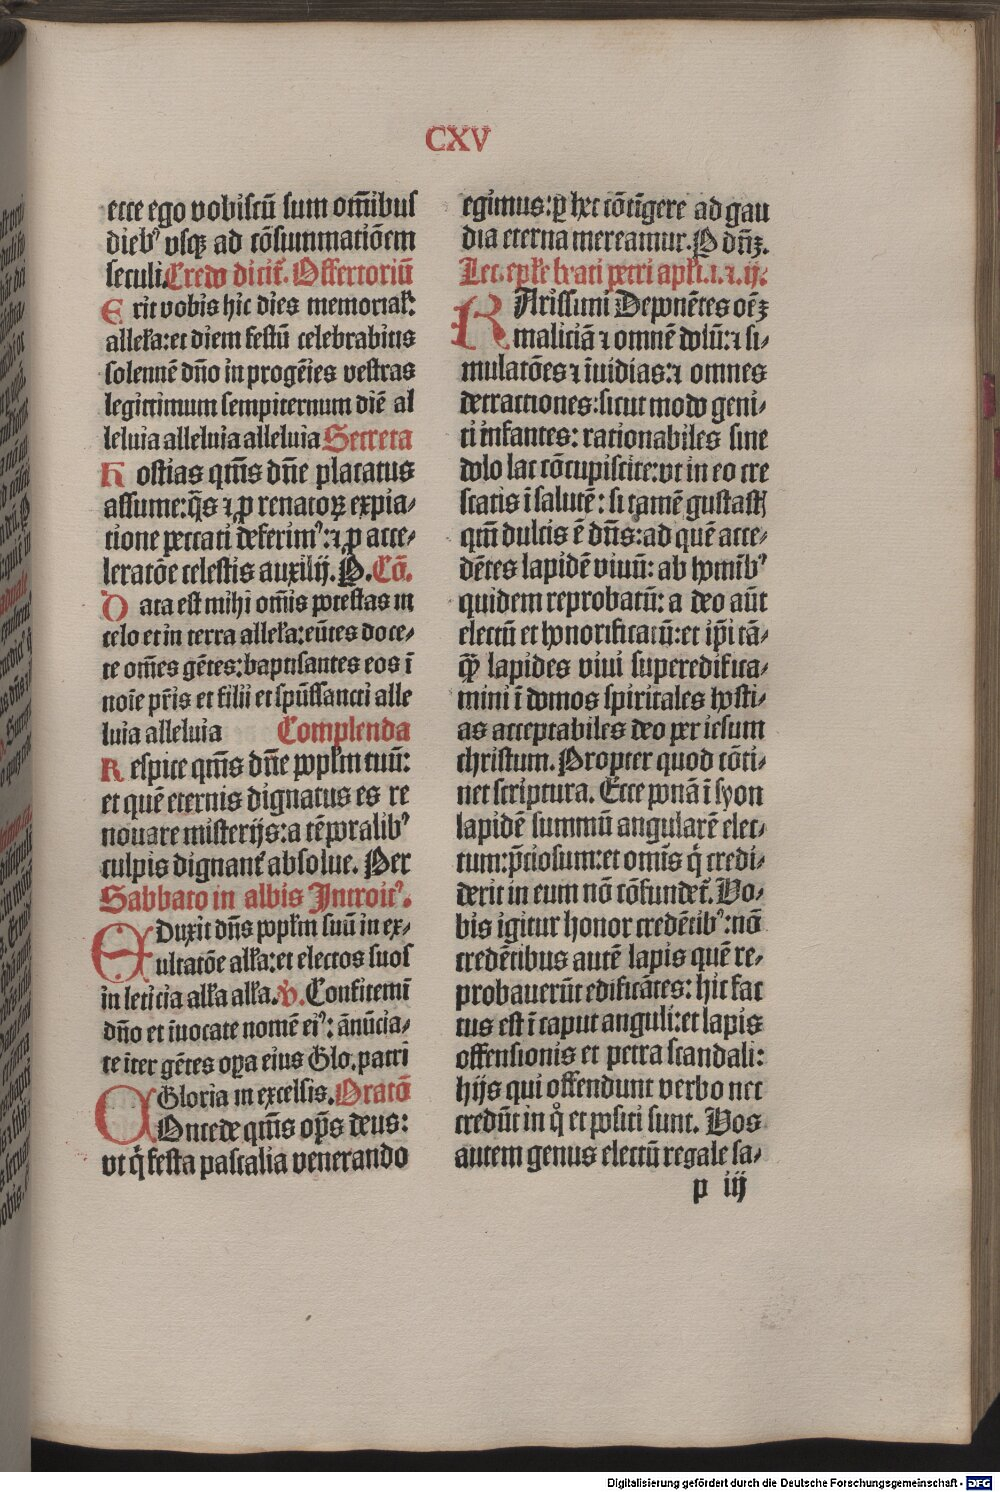 CXV
ecce ego vobiscū sum om̄ibus
dieb⁹ vsq̨ ad cōsummatiōem
seculi. Credo dicit᷑. Offertoriū
Erit vobis hic dies memorial᷑:
alleľa: et diem festū celebrabitis
solennē dn̄o in progēies vestras
legittimum sempiternum diē al
leluia alleluia alleluia Secreta
Hostias qm̄s dn̄e placatus
assume: q̄s ⁊ ꝓ renatoꝝ expia-
tione peccati deferim⁹: ⁊ ꝓ acce-
leratōe celestis auxilij. P. Cō.
Data est mihi om̄is potestas in
celo et in terra alleľa: eūtes doce-
te om̄es gētes: baptisantes eos ī
noīe pr̄is et filii et spūssancti alle
luia alleluia Complenda
Respice qm̄s dn̄e popľm tuū:
et quē eternis dignatus es re
nouare misterijs: a tēporalib⁹
culpis dignant᷑ absolue. Per
Sabbato in albis Introit⁹.
EDuxit dn̄s popľm suū in ex-
ultatōe alľa: et electos suos
in leticia alľa alľa. V̄. Confitemī
dn̄o et īuocate nomē ei⁹: ānūcia-
te īter gētes oꝑa eius Glo. patri
Gloria in excelsis. Oratō
COncede qm̄s op̄s deus:
vt q̄ festa pascalia venerando
egimus: ꝑ hec cōtīgere ad gau
dia eterna mereamur. P dn̄ꝫ.
Lec. epľe beati petri apľi. i. ⁊. ij.
KArissimi Deponētes oēꝫ
maliciā ⁊ omnē dolū: ⁊ si-
mulatōes ⁊ īuidias: ⁊ omnes
detractiones: sicut modo geni-
ti infantes: rationabiles sine
dolo lac cōcupiscite: vt in eo cre
scatis ī salutē: si tamē gustast᷑
qm̄ dulcis ē dn̄s: ad quē acce-
dētes lapidē viuū: ab homīb⁹
quidem reprobatū: a deo aūt
electū et honorificatū: et ip̄i tā-
qꝫ lapides viui superedifica-
mini ī domos spiritales hosti-
as acceptabiles deo per iesum
christum. Propter quod cōti-
net scriptura. Ecce ponā ī syon
lapidē summū angularē elec-
tum: p̄ciosum: et omīs q̇ credi-
derit in eum nō cōfundet᷑. Vo-
bis igitur honor credētib⁹: nō
credētibus autē lapis quē re-
probauerūt edificātes: hic fac
tus est ī caput anguli: et lapis
offensionis et petra scandali:
hijs qui offendunt verbo nec
credūt in qͦ et positi sunt. Vos
autem genus electū regale sa-
p iij
Digitalisierung gefördert durch die Deutsche Forschungsgemeinschaft - DFG